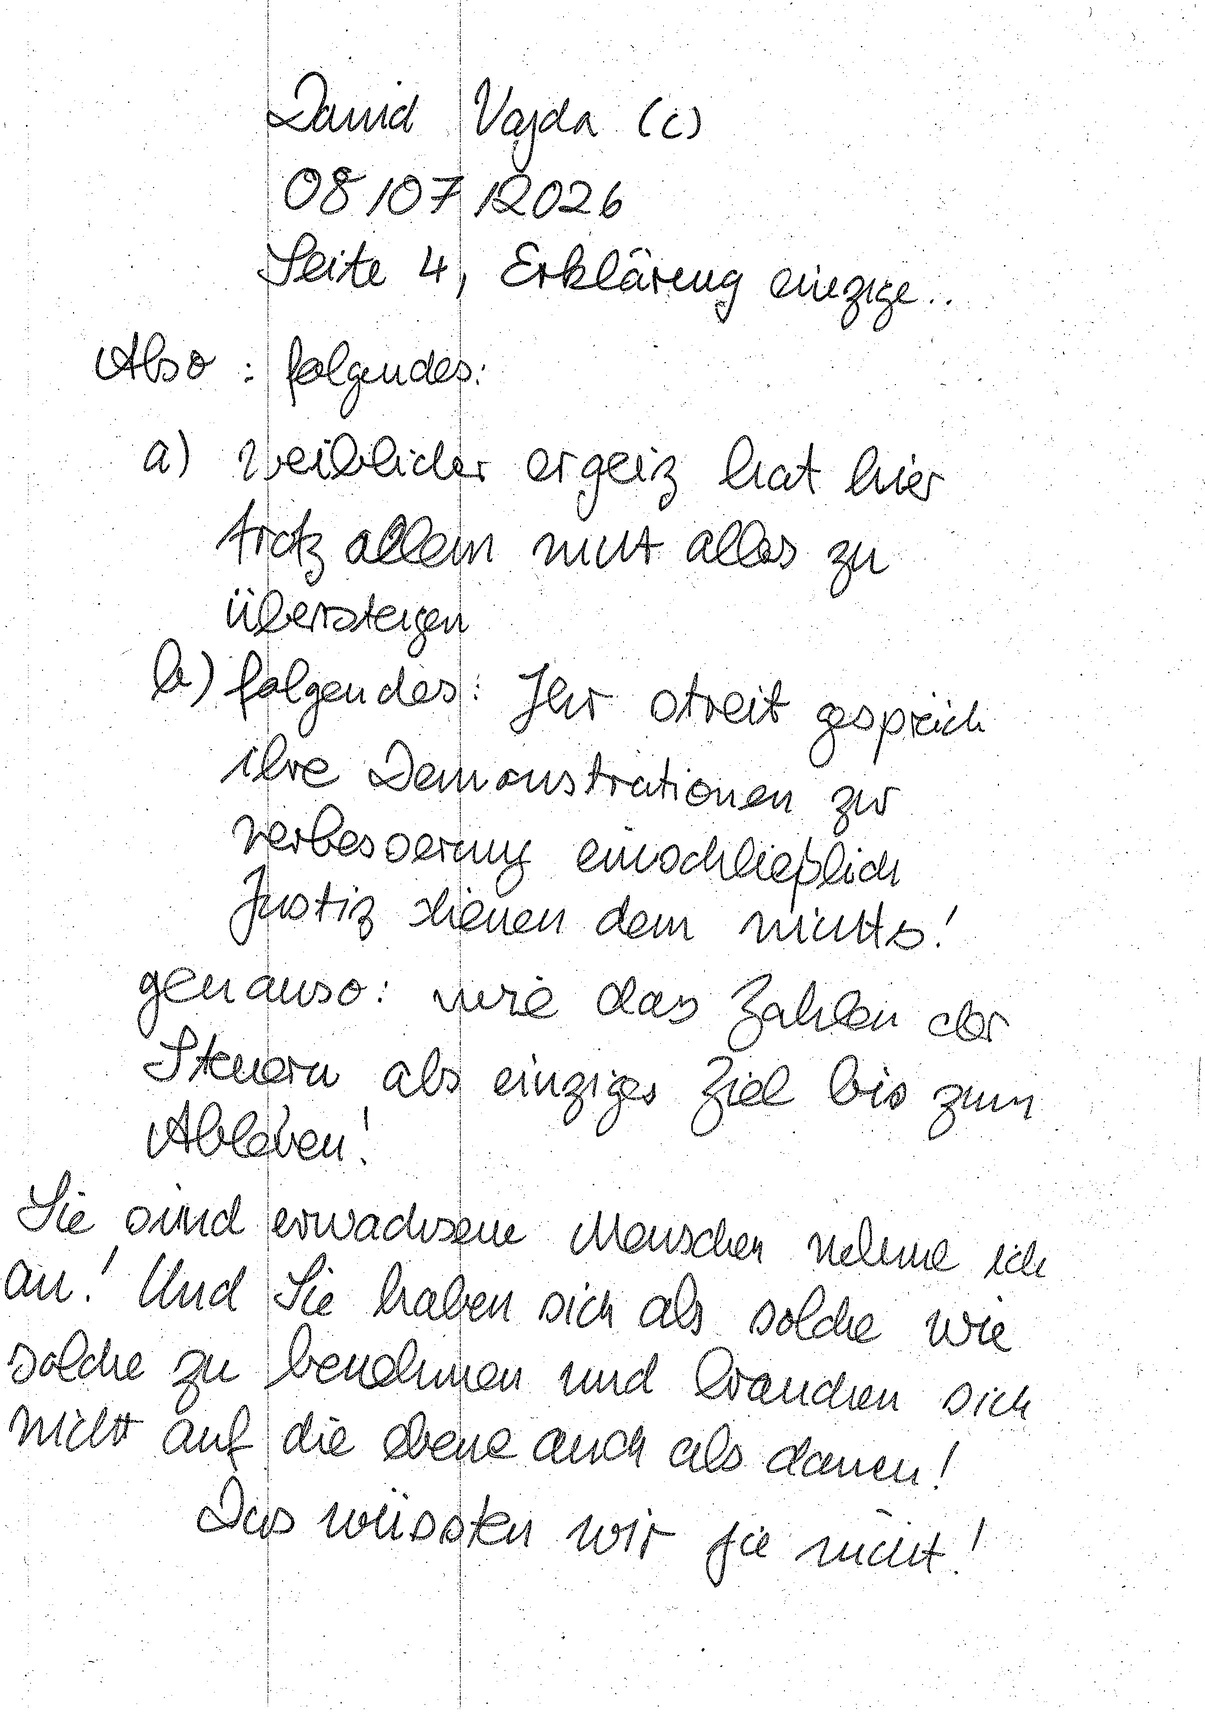 David Vajda (c)
08/07/2026
Seite 4, Erklärung einzige..
Also : folgendes:
a) weiblicher ergeiz hat hier
trotz allem nicht alles zu
übersteigen
b) folgendes: Ihr streit gespräch
ihre Demonstrationen zur
verbesserung einschließlich
Justiz dienen dem nichts!
genauso: wie das Zahlen der
Steuern als einziges Ziel bis zum
Ableben!
Sie sind erwachsene Menschen nehme ich
an! Und Sie haben sich als solche wie
solche zu benehmen und brauchen sich
nicht auf die ebene auch als damen!
Das wüssten wir sie nicht!